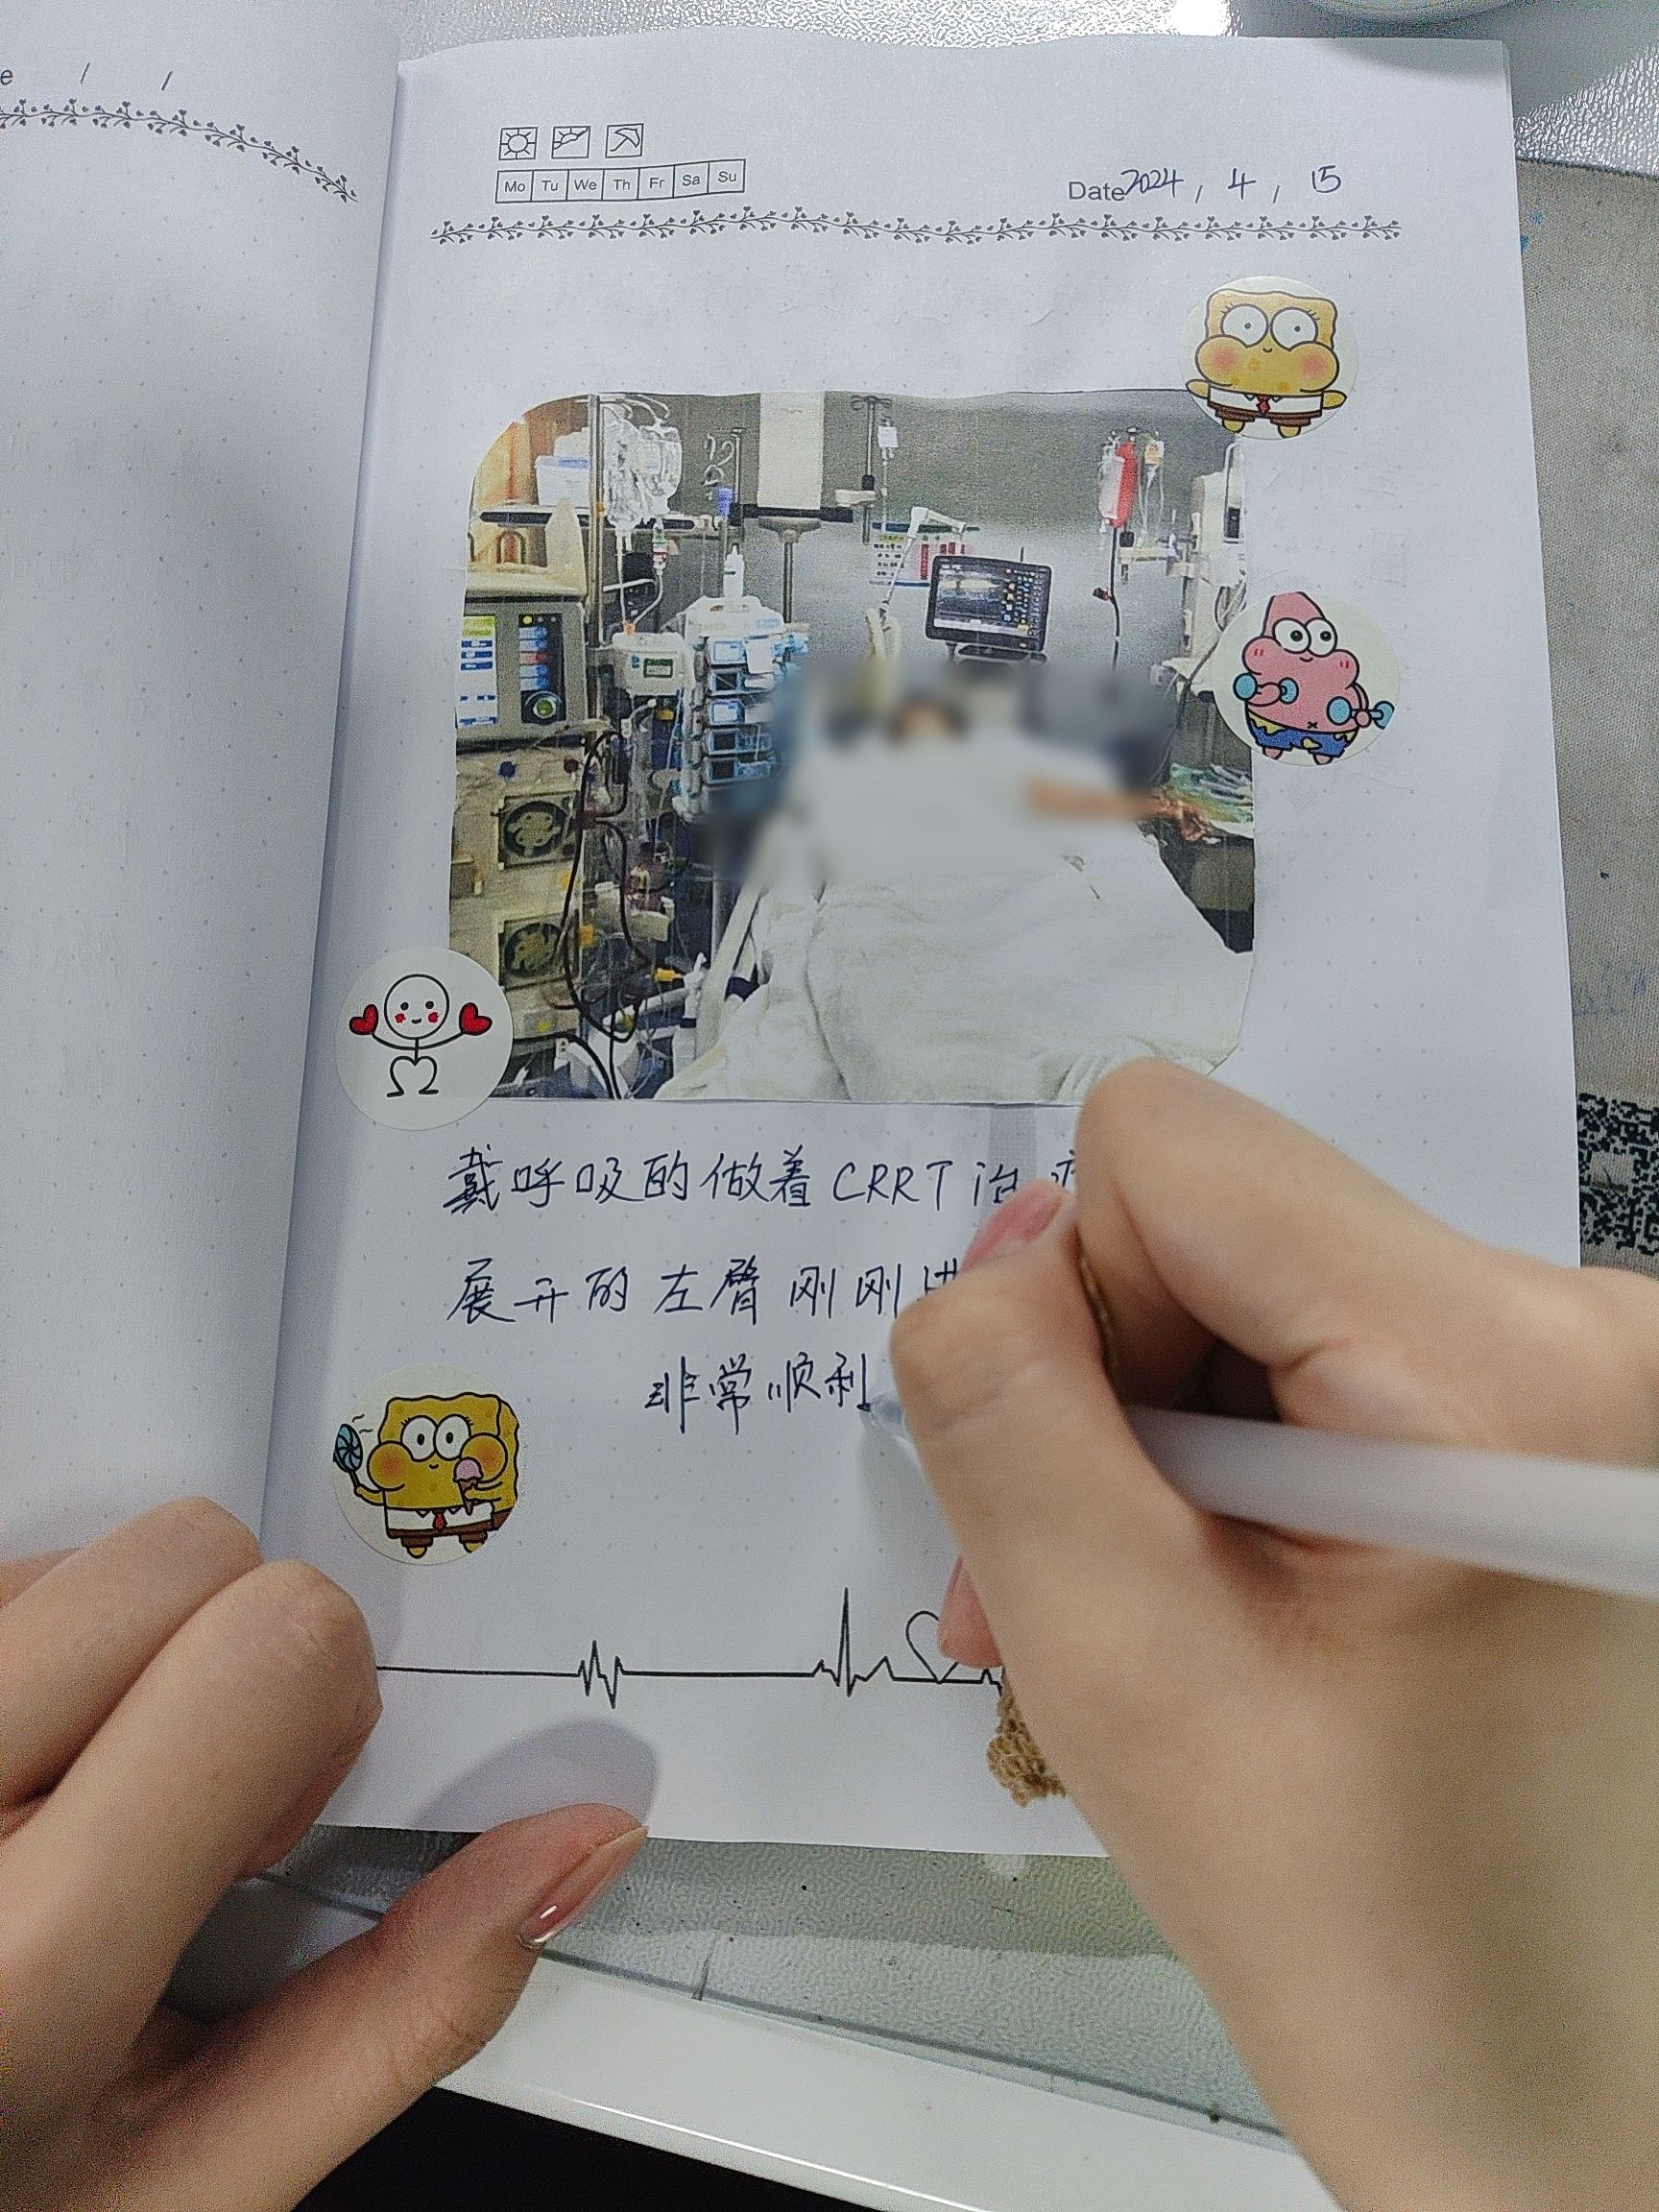 Mo Tu We Th Fr Sa Su
Date 2024 / 4 / 15
戴呼吸的做着CRRT治
展开的左臂刚刚
非常顺利